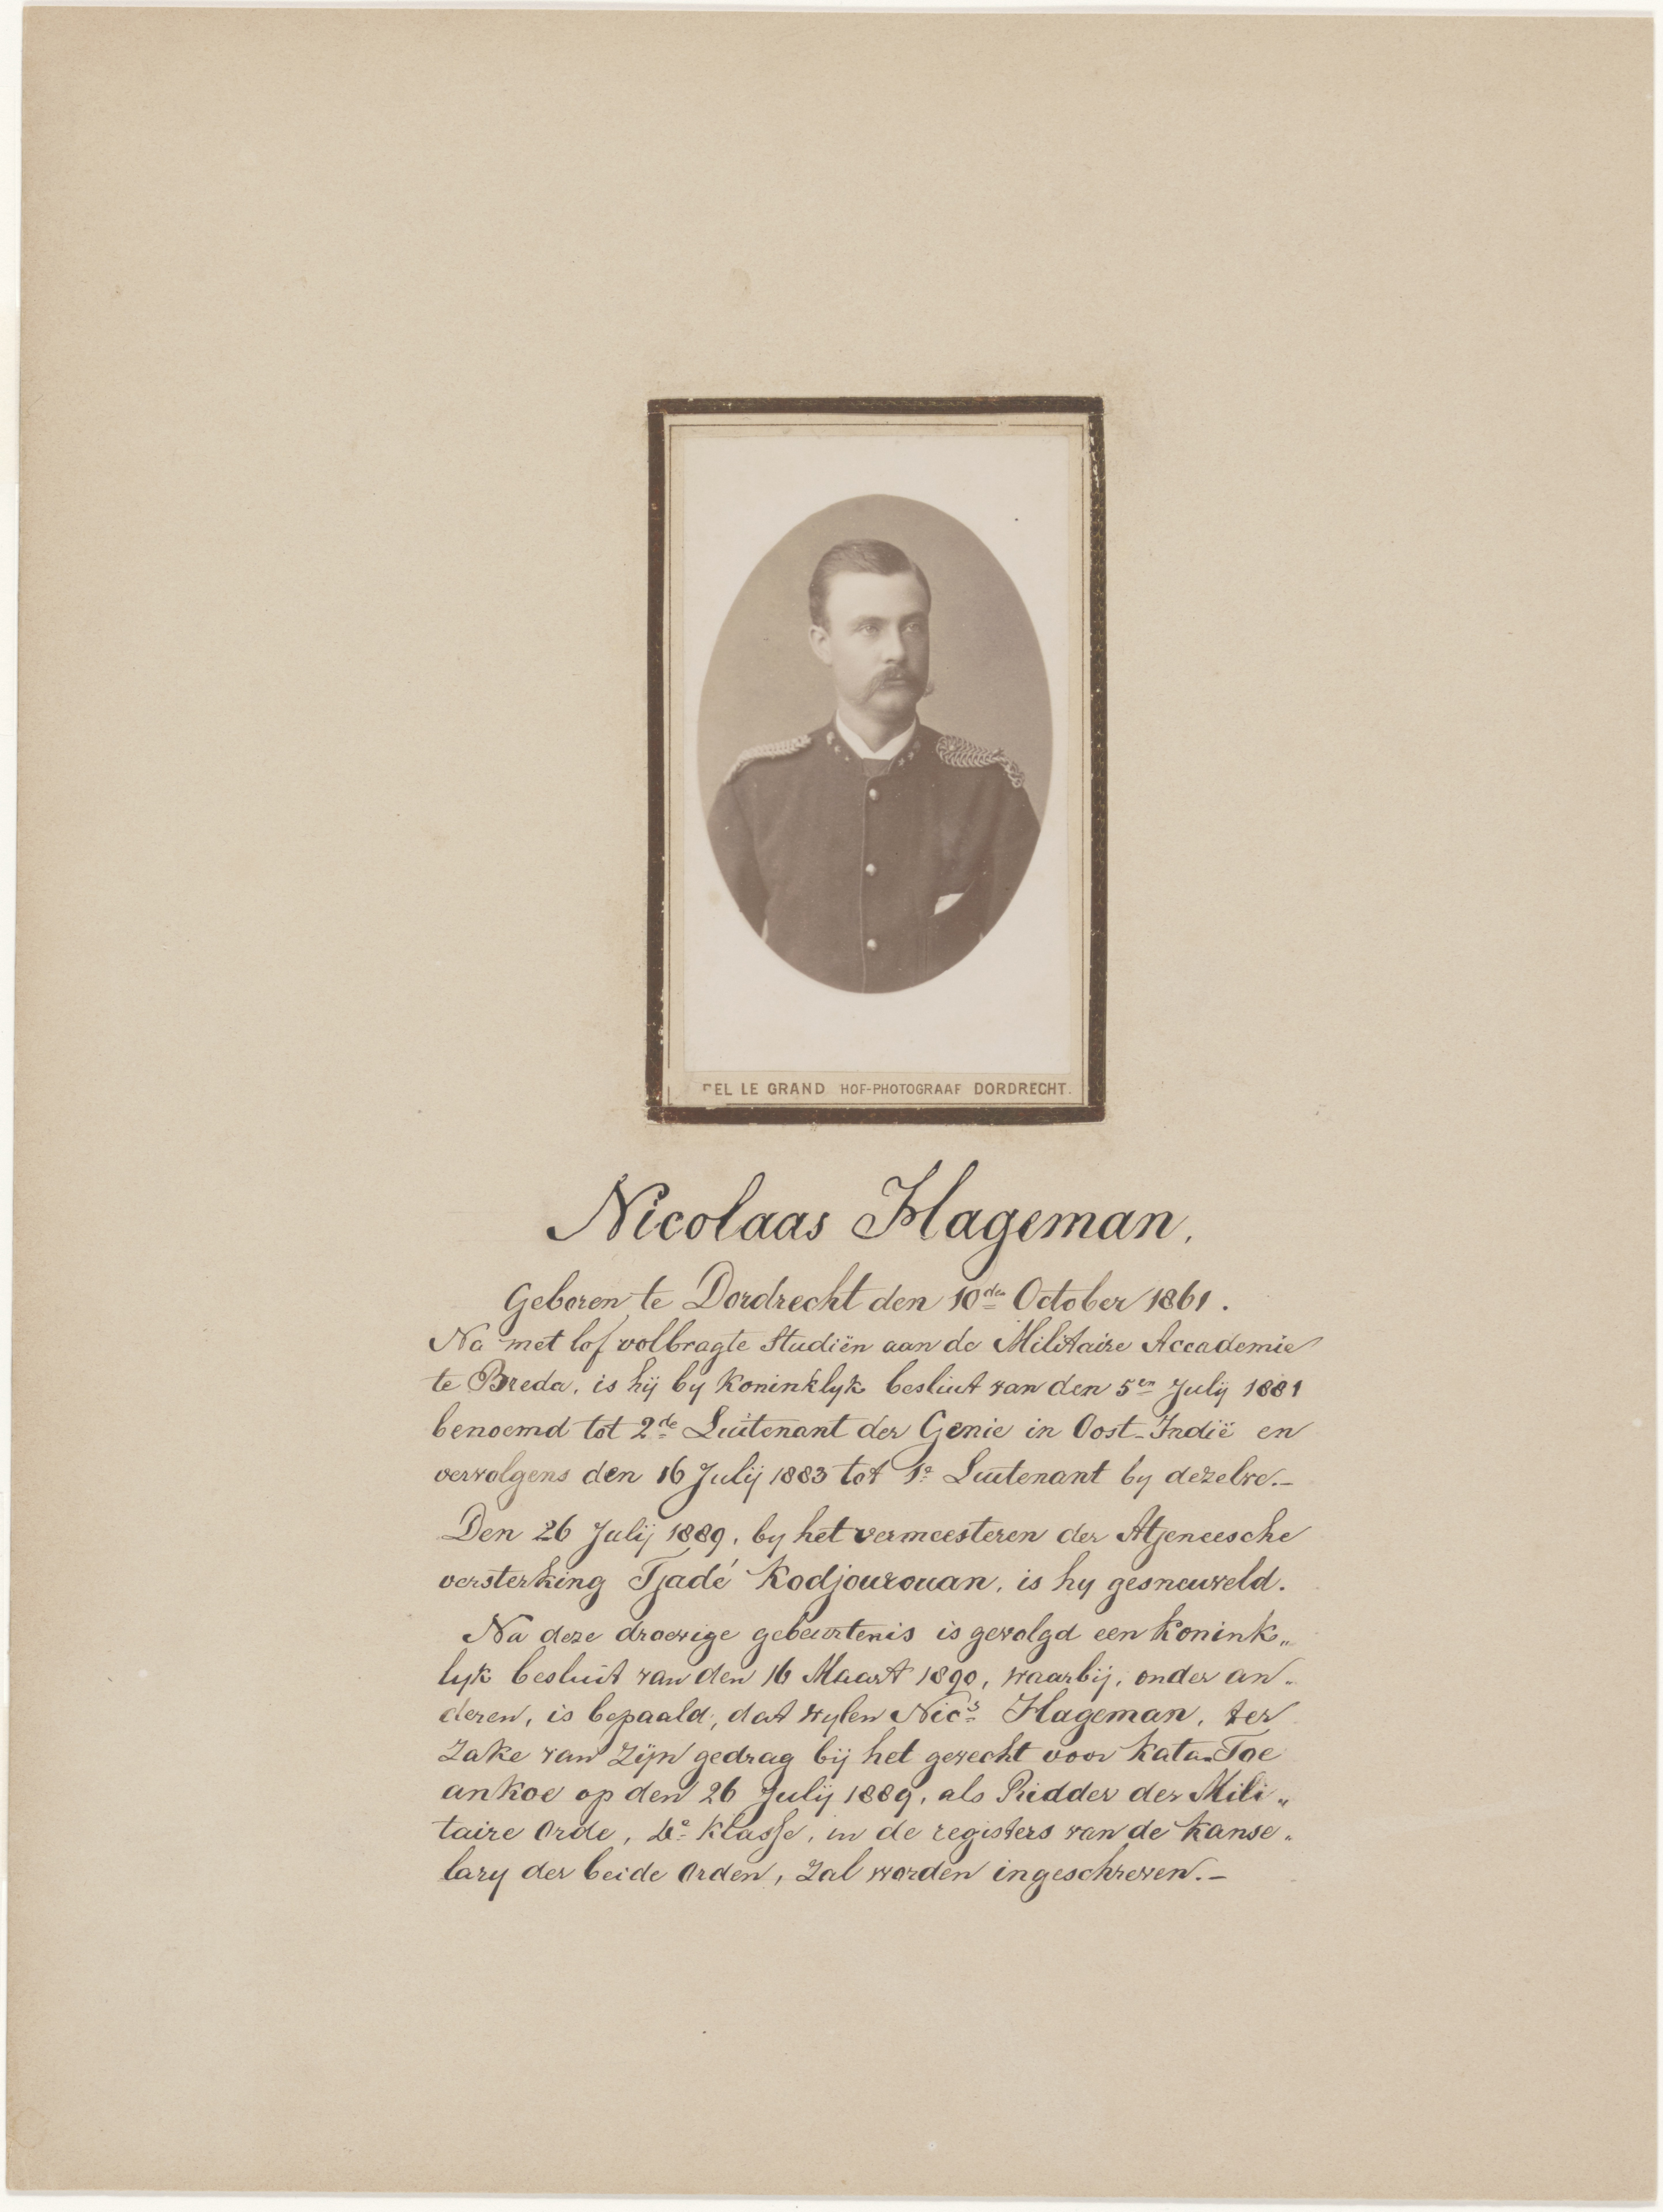 EL LE GRAND HOF-PHOTOGRAAF DORDRECHT.
Nicolaas Hageman,
Geboren te Dordrecht den 10den October 1861.
Na met lof volbragte Studiën aan de Militaire Accademie
te Breda, is hij by Koninklyk besluit van den 5en July 1881
benoemd tot 2de Luitenant der Genie in Oost-Indië en
vervolgens den 16 Julij 1883 tot 1e Luitenant by dezelve.-
Den 26 Julij 1889, by het vermeesteren der Atjeneesche
versterking Tjadé Kodjourouan, is hy gesneuveld.
Na deze droevige gebeurtenis is gevolgd een Konink„
lyk besluit van den 16 Maart 1890, waarbij, onder an„
deren, is bepaald, dat wylen Nics Hageman, ter
Zake van Zijn gedrag bij het gevecht voor Kata-Toe
ankoe op den 26 Julij 1889, als Ridder der Mili„
taire Orde, 4e Klasse, in de registers van de Kanse„
lary der beide Orden, Zal worden ingeschreven.-